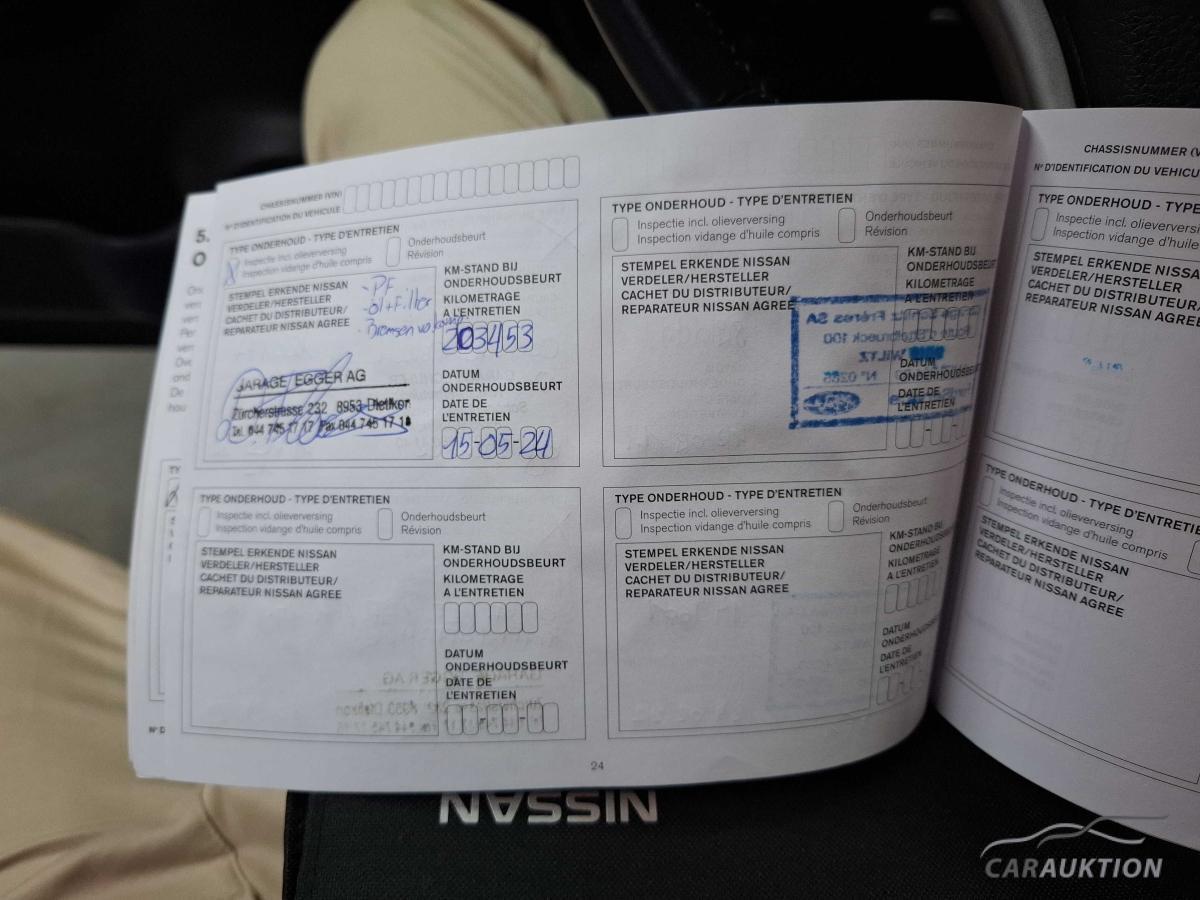 CHASSISNUMMER (VIN)
N° D'IDENTIFICATION DU VEHICULE
5.
TYPE ONDERHOUD - TYPE D'ENTRETIEN
X
Inspectie incl. olieverversing
Inspection vidange d'huile compris
Onderhoudsbeurt
Révision
STEMPEL ERKENDE NISSAN
VERDELER/HERSTELLER
CACHET DU DISTRIBUTEUR/
REPARATEUR NISSAN AGREE
- PF
- Öl+Filter
- Bremsen
KM-STAND BIJ
ONDERHOUDSBEURT
KILOMETRAGE
A L'ENTRETIEN
203453
GARAGE EGGER AG
Zürcherstrasse 232 8953 Dietikon
Tel. 044 745 17 17 Fax 044 745 17 18
DATUM
ONDERHOUDSBEURT
DATE DE
L'ENTRETIEN
15-05-24
TYPE ONDERHOUD - TYPE D'ENTRETIEN
Inspectie incl. olieverversing
Inspection vidange d'huile compris
Onderhoudsbeurt
Révision
STEMPEL ERKENDE NISSAN
VERDELER/HERSTELLER
CACHET DU DISTRIBUTEUR/
REPARATEUR NISSAN AGREE
KM-STAND BIJ
ONDERHOUDSBEURT
KILOMETRAGE
A L'ENTRETIEN
DATUM
ONDERHOUDSBEURT
DATE DE
L'ENTRETIEN
TYPE ONDERHOUD - TYPE D'ENTRETIEN
Inspectie incl. olieverversing
Inspection vidange d'huile compris
Onderhoudsbeurt
Révision
STEMPEL ERKENDE NISSAN
VERDELER/HERSTELLER
CACHET DU DISTRIBUTEUR/
REPARATEUR NISSAN AGREE
KM-STAND BIJ
ONDERHOUDSBEURT
KILOMETRAGE
A L'ENTRETIEN
DATUM
ONDERHOUDSBEURT
DATE DE
L'ENTRETIEN
TYPE ONDERHOUD - TYPE D'ENTRETIEN
Inspectie incl. olieverversing
Inspection vidange d'huile compris
Onderhoudsbeurt
Révision
STEMPEL ERKENDE NISSAN
VERDELER/HERSTELLER
CACHET DU DISTRIBUTEUR/
REPARATEUR NISSAN AGREE
KM-STAND BIJ
ONDERHOUDSBEURT
KILOMETRAGE
A L'ENTRETIEN
DATUM
ONDERHOUDSBEURT
DATE DE
L'ENTRETIEN
24
CHASSISNUMMER
N° D'IDENTIFICATION DU
TYPE ONDERHOUD - TYPE
Inspectie incl.
Inspection vidange d'huile compris
STEMPEL ERKENDE
VERDELER/HERSTELLER
CACHET DU DISTRIBUTEUR/
REPARATEUR NISSAN
TYPE ONDERHOUD - TYPE
Inspectie incl. olieverversing
Inspection vidange d'huile compris
STEMPEL ERKENDE NISSAN
VERDELER/HERSTELLER
CACHET DU DISTRIBUTEUR/
REPARATEUR NISSAN AGREE
NISSAN
CARAUKTION